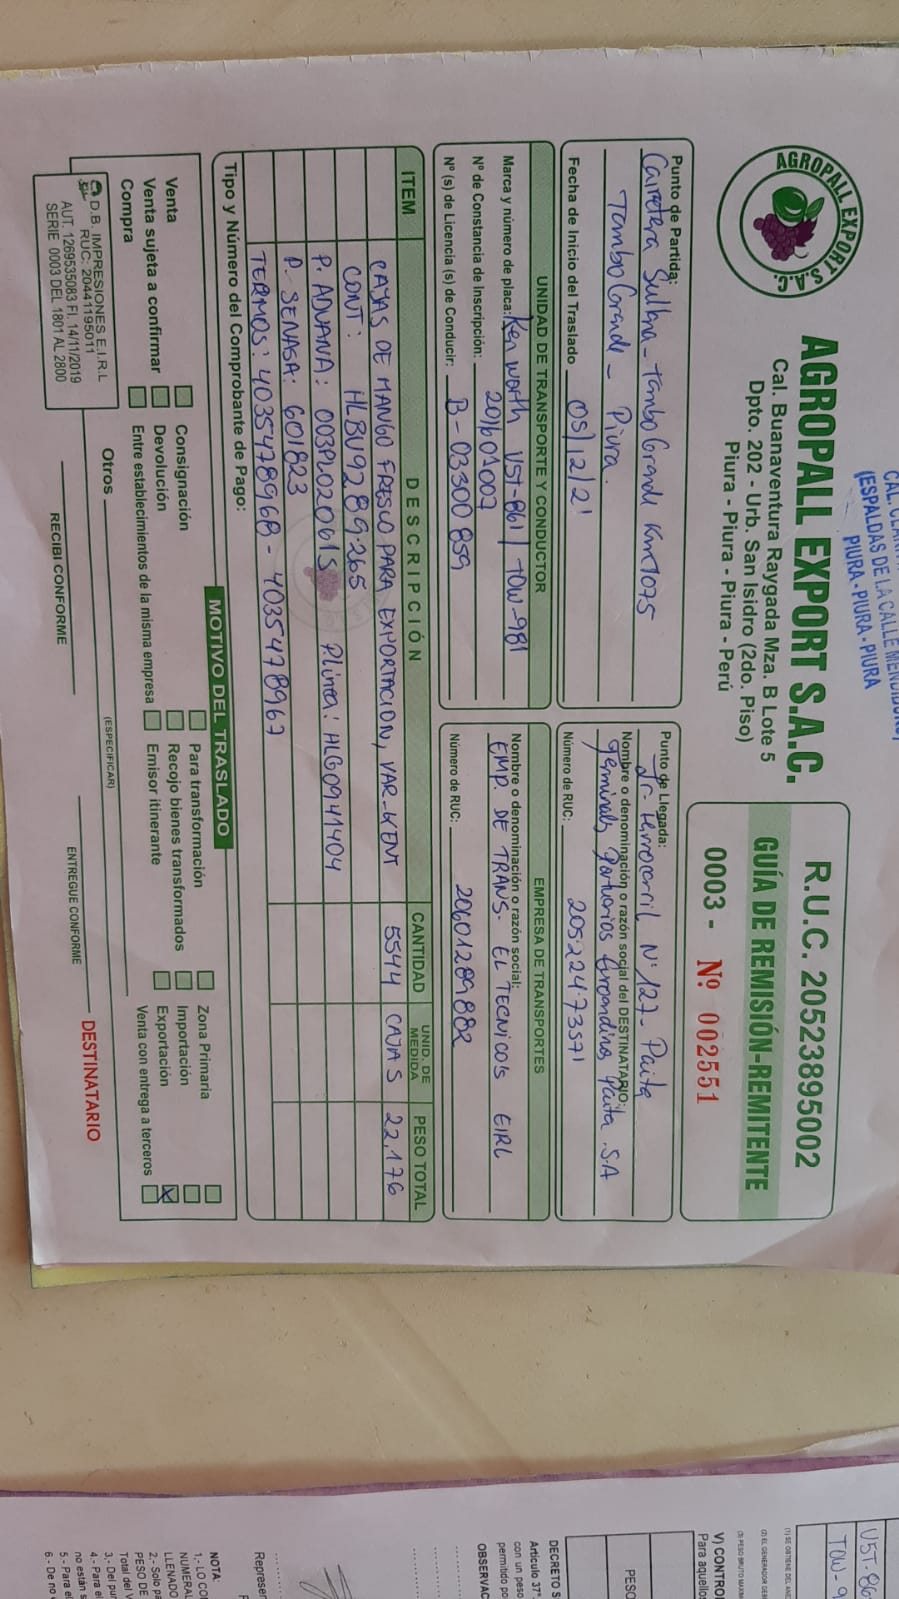 AGROPALL EXPORT S.A.C.
AGROPALL EXPORT S.A.C.
Cal. Buanaventura Raygada Mza. B Lote 5
Dpto. 202 - Urb. San Isidro (2do. Piso)
Piura - Piura - Piura - Perú
(ESPALDAS DE LA CALLE
PIURA - PIURA - PIURA
R.U.C. 20523895002
GUÍA DE REMISIÓN-REMITENTE
0003 - Nº 002551
Punto de Partida:
Carretera Sullana - Tambo Grande Km 1075
Tambo Grande - Piura.
Fecha de Inicio del Traslado 05/12/21
Punto de Llegada:
Jr. Ferrocarril Nº 127 - Paita
Nombre o denominación o razón social del DESTINATARIO:
Terminales Portuarios Euroandinos Paita S.A
Número de RUC: 20522473571
UNIDAD DE TRANSPORTE Y CONDUCTOR
Marca y número de placa: Kenworth V5T-861 / TOW-981
Nº de Constancia de Inscripción:
Nº (s) de Licencia (s) de Conducir: B-03300859
EMPRESA DE TRANSPORTES
Nombre o denominación o razón social:
EMP. DE TRANS. EL TECNICO'S EIRL
Número de RUC: 20601289882
ITEM DESCRIPCIÓN CANTIDAD UNID. DE MEDIDA PESO TOTAL
CAJAS DE MANGO FRESCO PARA EXPORTACION, VAR-KENT 5544 CAJAS 22,176
CONT: HLBU9289265
P. ADUANA: 003PL020615 P.linea: HLG0941404
P. SENASA: 601823
TERMOS: 4035478968 - 4035478967
Tipo y Número del Comprobante de Pago:
MOTIVO DEL TRASLADO
Venta
Venta sujeta a confirmar
Compra
Consignación
Devolución
Entre establecimientos de la misma empresa
Para transformación
Recojo bienes transformados
Emisor itinerante
Zona Primaria
Importación
Exportación X
Venta con entrega a terceros
Otros
(ESPECIFICAR)
D.B. IMPRESIONES E.I.R.L
RUC: 20441195011
AUT. 1269535083 FI. 14/11/2019
SERIE 0003 DEL 1801 AL 2800
RECIBI CONFORME
ENTREGUE CONFORME
DESTINATARIO
V5T-86
TOW-9
V) CONTROL
Para aquello
PESO
DECRETO S
Artículo 37°
con un peso
permitido po
OBSERVAC
Represen
NOTA:
1.- LO CO
NUMERAL
LLENADO
2.- Solo pa
PESO DE
Total del V
3.- De pur
4.- Para el
no están s
5.- Para el
6.- De no